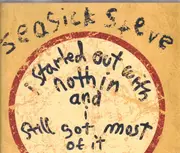 SEASICK STEVE
i started out with
nothin
and
i
still got most
of it